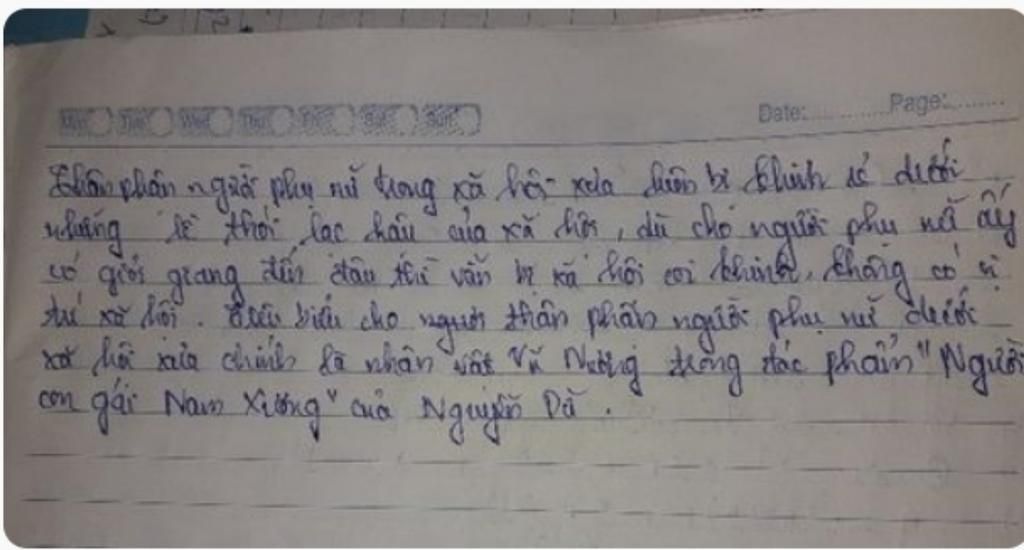 Date:............Page:.........
Thân phận người phụ nữ trong xã hội xưa luôn bị khinh rẻ dưới
những lề thói lạc hậu của xã hội, dù cho người phụ nữ ấy
có giỏi giang đến đâu thì vẫn bị xã hội coi khinh, không có vị
thế xã hội. Tiêu biểu cho người thân phận người phụ nữ dưới
xã hội xưa chính là nhân vật Vũ Nương trong tác phẩm "Người
con gái Nam Xương" của Nguyễn Dữ.